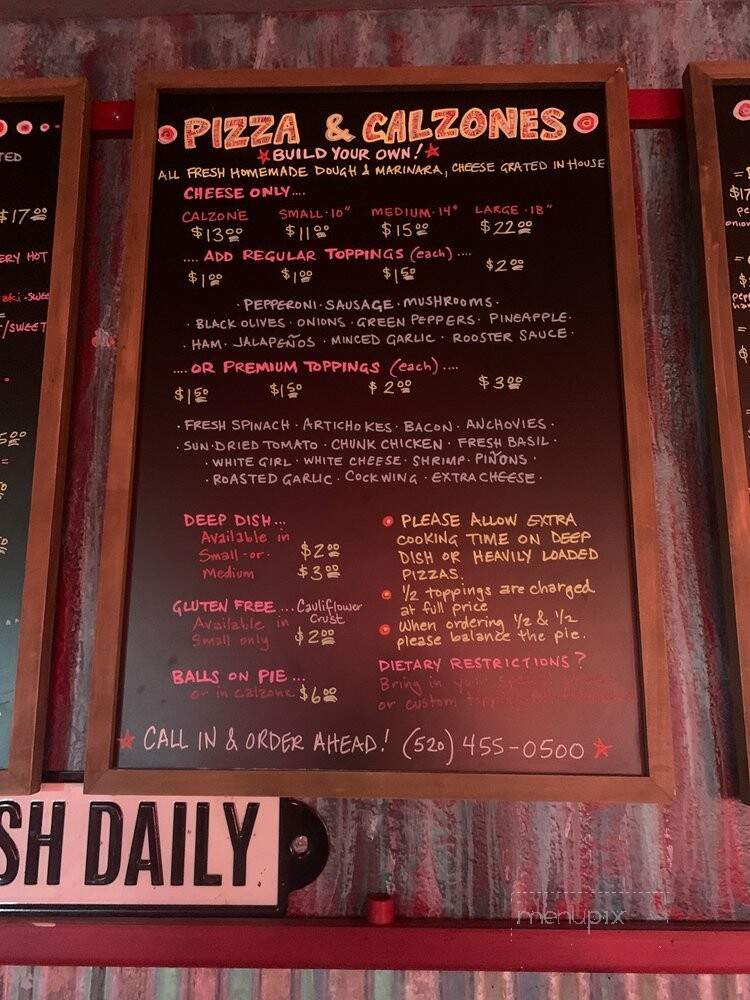 PIZZA & CALZONES
BUILD YOUR OWN!
ALL FRESH HOMEMADE DOUGH & MARINARA, CHEESE GRATED IN HOUSE
CHEESE ONLY....
CALZONE SMALL·10" MEDIUM·14" LARGE·18"
$13.00 $11.00 $15.00 $22.00
.... ADD REGULAR TOPPINGS (each) ....
$1.00 $1.00 $1.50 $2.00
·PEPPERONI·SAUSAGE·MUSHROOMS·
·BLACK OLIVES·ONIONS·GREEN PEPPERS·PINEAPPLE·
·HAM·JALAPEÑOS·MINCED GARLIC·ROOSTER SAUCE·
....OR PREMIUM TOPPINGS (each)....
$1.50 $1.50 $2.00 $3.00
·FRESH SPINACH·ARTICHOKES·BACON·ANCHOVIES·
·SUN·DRIED TOMATO·CHUNK CHICKEN·FRESH BASIL·
·WHITE GIRL·WHITE CHEESE·SHRIMP·PIÑONS·
·ROASTED GARLIC·COCKWING·EXTRA CHEESE·
DEEP DISH...
Available in
Small -or- $2.00
Medium $3.00
GLUTEN FREE ...Cauliflower
Crust
Available in
Small only $2.00
BALLS ON PIE ...
or in calzone $6.00
PLEASE ALLOW EXTRA
COOKING TIME ON DEEP
DISH OR HEAVILY LOADED
PIZZAS.
1/2 toppings are charged
at full price
When ordering 1/2 & 1/2
please balance the pie.
DIETARY RESTRICTIONS?
Bring in your
or custom
CALL IN & ORDER AHEAD! (520) 455-0500
$17.00
ERY HOT
aki-SWEE
/SWEET
SH DAILY
menupix